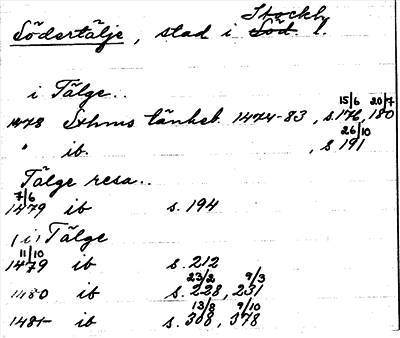 Stockh
Södertälje, stad i Söd. l.
i Tälge..
15/6 20/7
1478 Sthms tänkeb. 1474-83, s.176, 180
26/10
" ib. , s 191
Tälge resa..
7/6
1479 ib s. 194
i Tälge
11/10
1479 ib s. 212
23/2 9/3
1480 ib s. 228, 231
13/8 9/10
1481 ib s. 308, 378